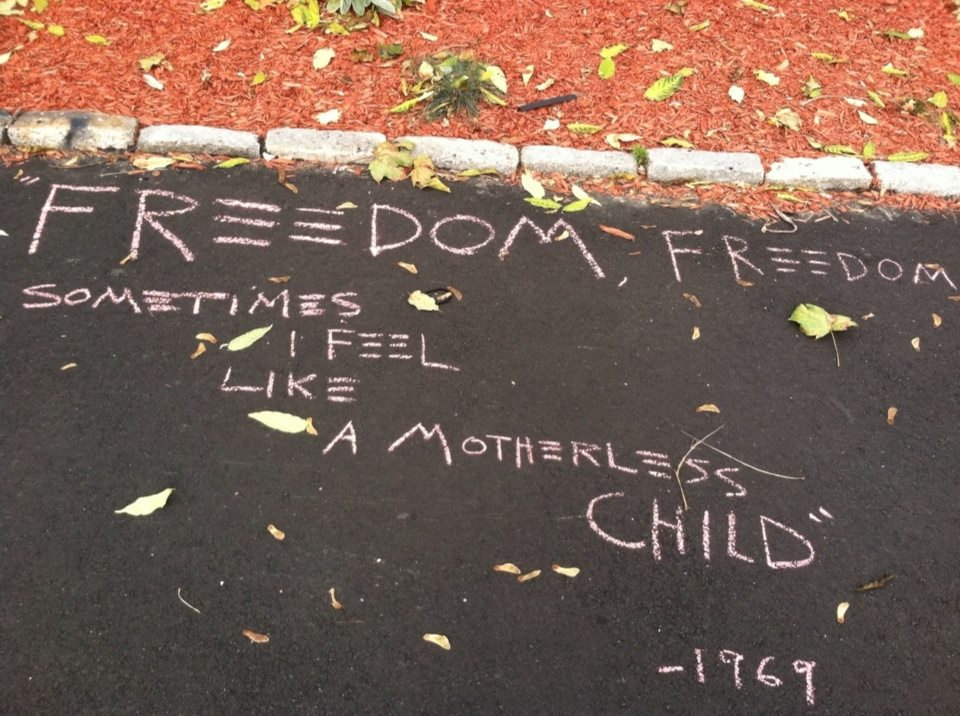 "FREEDOM, FREEDOM
SOMETIMES
I FEEL
LIKE
A MOTHERLESS
CHILD"
-1969